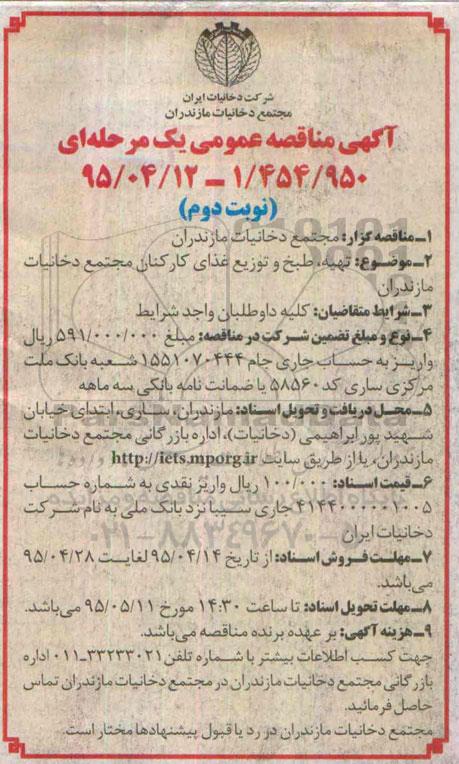 شرکت دخانیات ایران
مجتمع دخانیات مازندران
آگهی مناقصه عمومی یک مرحله‌ای
۱/۴۵۴/۹۵۰ ـ ۹۵/۰۴/۱۲
(نوبت دوم)
۱ـ مناقصه گزار: مجتمع دخانیات مازندران
۲ـ موضوع: تهیه، طبخ و توزیع غذای کارکنان مجتمع دخانیات
مازندران
۳ـ شرایط متقاضیان: کلیه داوطلبان واجد شرایط
۴ـ نوع و مبلغ تضمین شرکت در مناقصه: مبلغ ۵۹۱/۰۰۰/۰۰۰ ریال
واریز به حساب جاری جام ۱۵۵۱۰۷۰۴۴۴ شعبه بانک ملت
مرکزی ساری کد ۵۸۵۶۰ یا ضمانت نامه بانکی سه ماهه
۵ـ محل دریافت و تحویل اسناد: مازندران، ساری، ابتدای خیابان
شهید پورابراهیمی (دخانیات)، اداره بازرگانی مجتمع دخانیات
مازندران، یا از طریق سایت http://iets.mporg.ir
۶ـ قیمت اسناد: ۱۰۰/۰۰۰ ریال واریز نقدی به شماره حساب
۴۱۴۴۰۰۰۰۰۱۰۰۵ جاری سیبا نزد بانک ملی به نام شرکت
دخانیات ایران
۷ـ مهلت فروش اسناد: از تاریخ ۹۵/۰۴/۱۴ لغایت ۹۵/۰۴/۲۸
می‌باشد.
۸ـ مهلت تحویل اسناد: تا ساعت ۱۴:۳۰ مورخ ۹۵/۰۵/۱۱ می‌باشد.
۹ـ هزینه آگهی: بر عهده برنده مناقصه می‌باشد.
جهت کسب اطلاعات بیشتر با شماره تلفن ۳۳۲۳۳۰۲۱ـ۰۱۱ اداره
بازرگانی مجتمع دخانیات مازندران در مجتمع دخانیات مازندران تماس
حاصل فرمائید.
مجتمع دخانیات مازندران در رد یا قبول پیشنهادها مختار است.
۰۲۱-۸۸۳۴۹۶۷۰